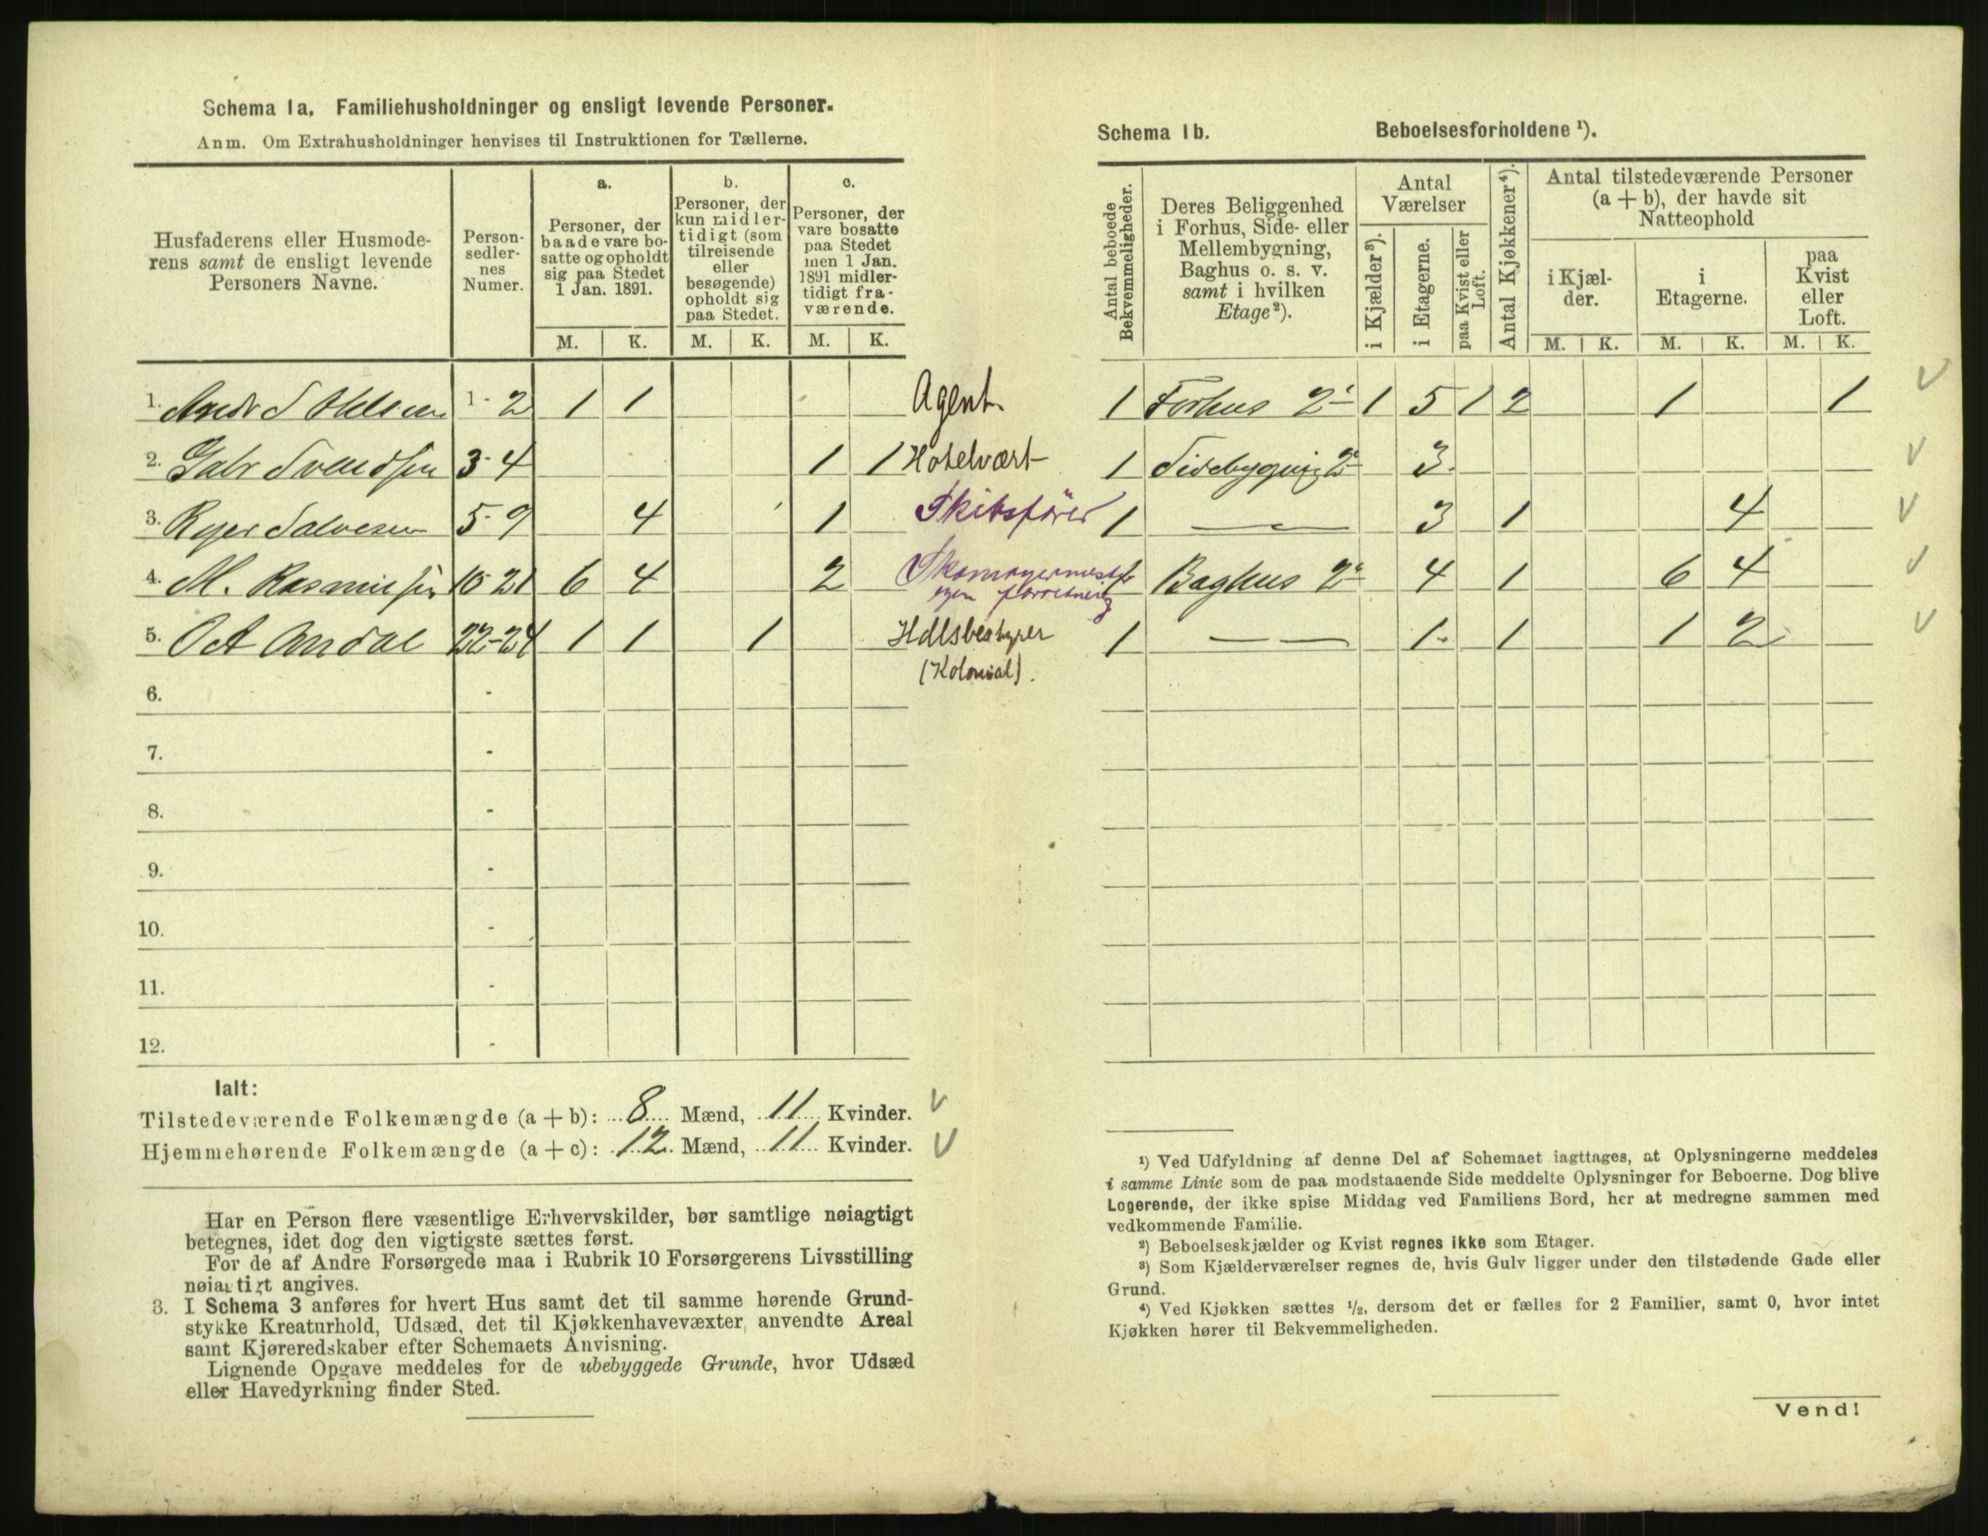 Schema 1a. Familiehusholdninger og ensligt levende Personer.
Anm. Om Extrahusholdninger henvises til Instruktionen for Tællerne.
Husfaderens eller Husmode-
rens samt de ensligt levende
Personers Navne.
Person-
sedler-
nes
Numer.
a.
Personer, der
baade vare bo-
satte og opholdt
sig paa Stedet
1 Jan. 1891.
b.
Personer, der
kun midler-
tidigt (som
tilreisende
eller
besøgende)
opholdt sig
paa Stedet.
c.
Personer, der
vare bosatte
paa Stedet
men 1 Jan.
1891 midler-
tidigt fra-
værende.
M. K. M. K. M. K.
1. Andr S 1 - 2 1 1 Agent.
2. Gabr Svendsen 3 - 4 1 1 Hotelvært
3. Ryer Salvesen 5 - 9 4 1 Skibsfører
4. M. Rasmussen 10 - 21 6 4 2 Skomagermester
egen forretning
5. O A Omdal 22 - 24 1 1 1 Hdlsbestyrer
(Kolonial).
6. -
7. -
8. -
9. -
10. -
11. -
12. -
Ialt:
Tilstedeværende Folkemængde (a + b): 8 Mænd, 11 Kvinder.
Hjemmehørende Folkemængde (a + c): 12 Mænd, 11 Kvinder.
Har en Person flere væsentlige Erhvervskilder, bør samtlige nøiagtigt
betegnes, idet dog den vigtigste sættes først.
For de af Andre Forsørgede maa i Rubrik 10 Forsørgerens Livsstilling
nøiagtigt angives.
3. I Schema 3 anføres for hvert Hus samt det til samme hørende Grund-
stykke Kreaturhold, Udsæd, det til Kjøkkenhavevæxter anvendte Areal
samt Kjøreredskaber efter Schemaets Anvisning.
Lignende Opgave meddeles for de ubebyggede Grunde, hvor Udsæd
eller Havedyrkning finder Sted.
Schema 1b. Beboelsesforholdene ¹).
Antal beboede
Bekvemmeligheder.
Deres Beliggenhed
i Forhus, Side- eller
Mellembygning,
Baghus o. s. v.
samt i hvilken
Etage²).
Antal
Værelser
i Kjælder³).
i Etagerne.
paa Kvist eller
Loft.
Antal Kjøkkener⁴).
Antal tilstedeværende Personer
(a + b), der havde sit
Natteophold
i Kjæl-
der.
i
Etagerne.
paa
Kvist
eller
Loft.
M. K. M. K. M. K.
1 Forhus 2 1 5 1 2 1 1
1 Sidebygning 2 3
1 — 3 1 4
1 Baghus 2 4 1 6 4
1 — — 1 1 1 2
¹) Ved Udfyldning af denne Del af Schemaet iagttages, at Oplysningerne meddeles
i samme Linie som de paa modstaaende Side meddelte Oplysninger for Beboerne. Dog blive
Logerende, der ikke spise Middag ved Familiens Bord, her at medregne sammen med
vedkommende Familie.
²) Beboelseskjælder og Kvist regnes ikke som Etager.
³) Som Kjælderværelser regnes de, hvis Gulv ligger under den tilstødende Gade eller
Grund.
⁴) Ved Kjøkken sættes ¹/₂, dersom det er fælles for 2 Familier, samt 0, hvor intet
Kjøkken hører til Bekvemmeligheden.
Vend!